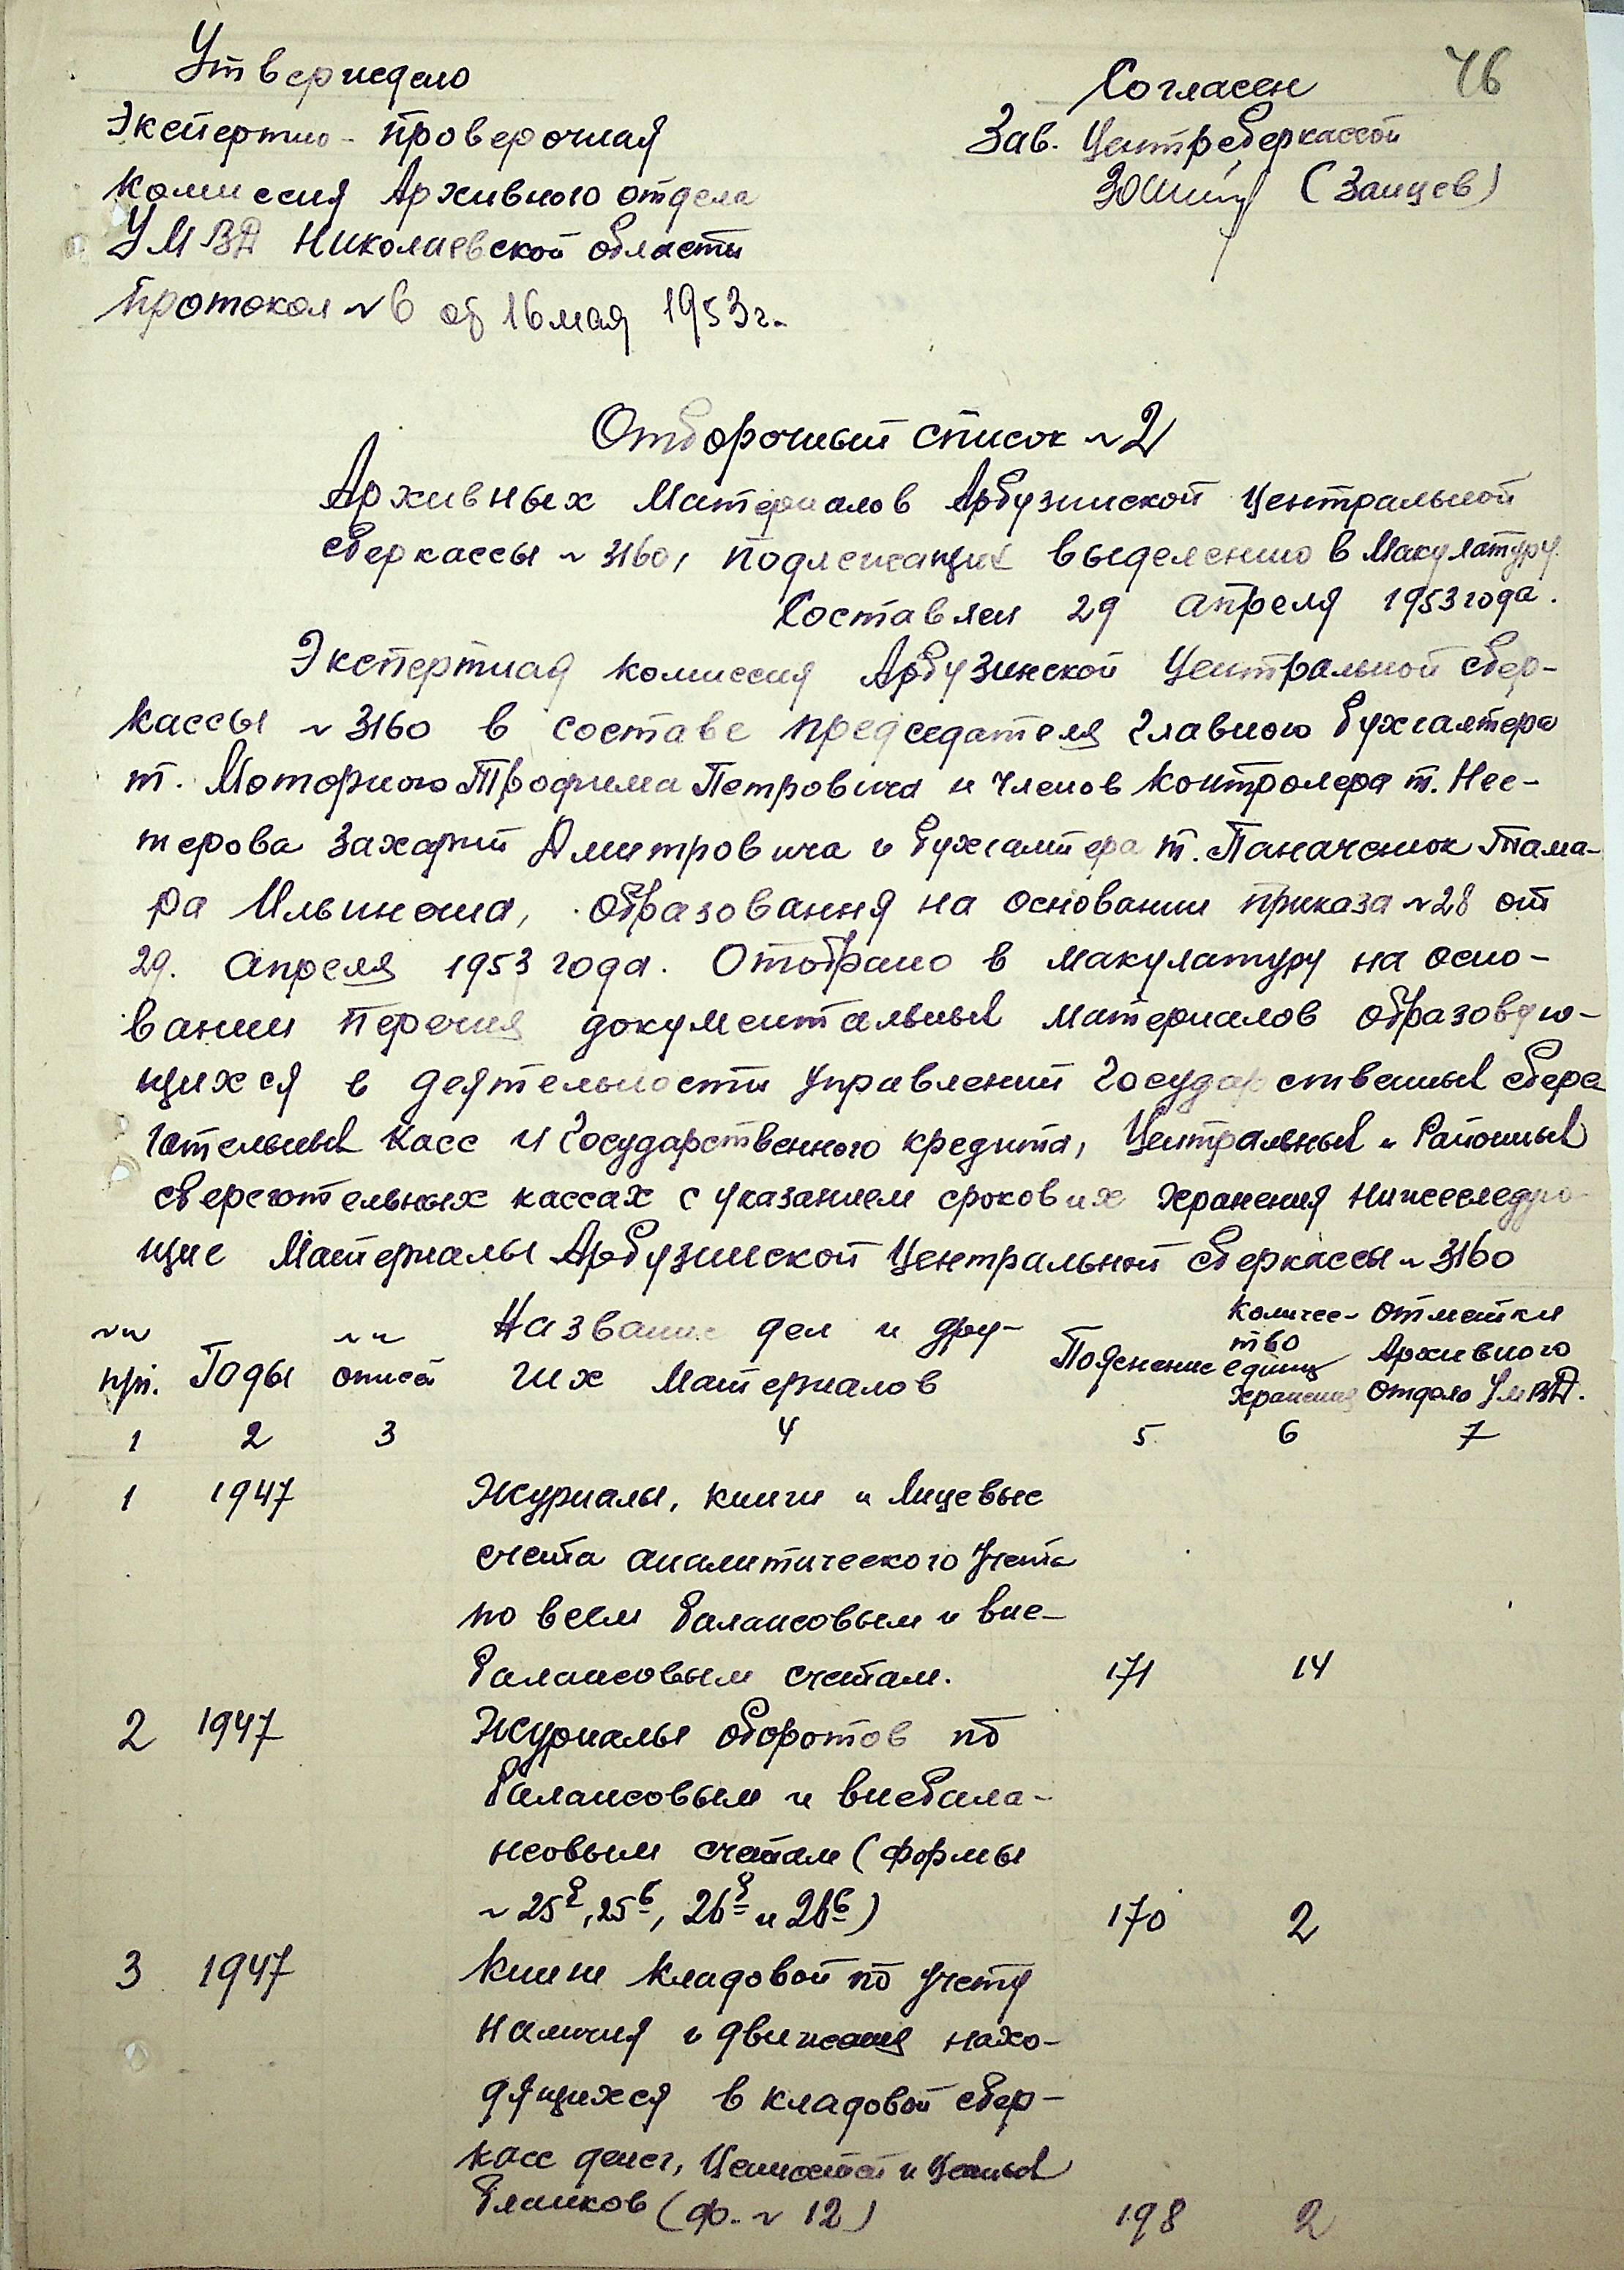 76
Утверждено
Экспертно-проверочная
комиссия Архивного отдела
УМВД Николаевской области
протокол №6 от 16 мая 1953г.
Согласен
Зав. Центрсберкассой
(Зайцев)
Отборочный список №2
Архивных материалов Арбузинской Центральной
сберкассы №3160, подлежащих выделению в макулатуру.
Составлен 29 апреля 1953 года.
Экспертная комиссия Арбузинской Центральной сбер-
кассы №3160 в составе председателя главного бухгалтера
т. Моторного Трофима Петровича и членов контролера т. Нес-
терова Захарий Дмитровича и бухгалтера т. Паначенюк Тама-
ра Ильинома, образования на основании приказа №28 от
29. апреля 1953 года. Отобрано в макулатуру на осно-
вании перечня документальных материалов образовую-
щихся в деятельности управлений государственных сбере
гательных касс и государственного кредита, Центральных и Районных
сберегательных кассах с указанием сроков их хранения нижеследую-
щие материалы Арбузинской Центральной сберкассы №3160
№№ п/п. Годы №№ описи Название дел и дру- гих материалов Пояснение Количес- тво единиц хранения Отметки Архивного Отдела УМВД.
1 2 3 4 5. 6 7
1 1947 Журналы, книги и лицевые
счета аналитического учета
по всем балансовым и вне-
балансовым счетам. 171 14
2 1947 Журналы оборотов по
балансовым и внебала-
нсовым счетам (формы
№25а, 25б, 26а и 26б) 170 2
3 1947 Книги кладовой по учету
наличия и движения нахо-
дящихся в кладовой сбер-
касс денег, ценностей и ценных
бланков (ф. №12) 198 2